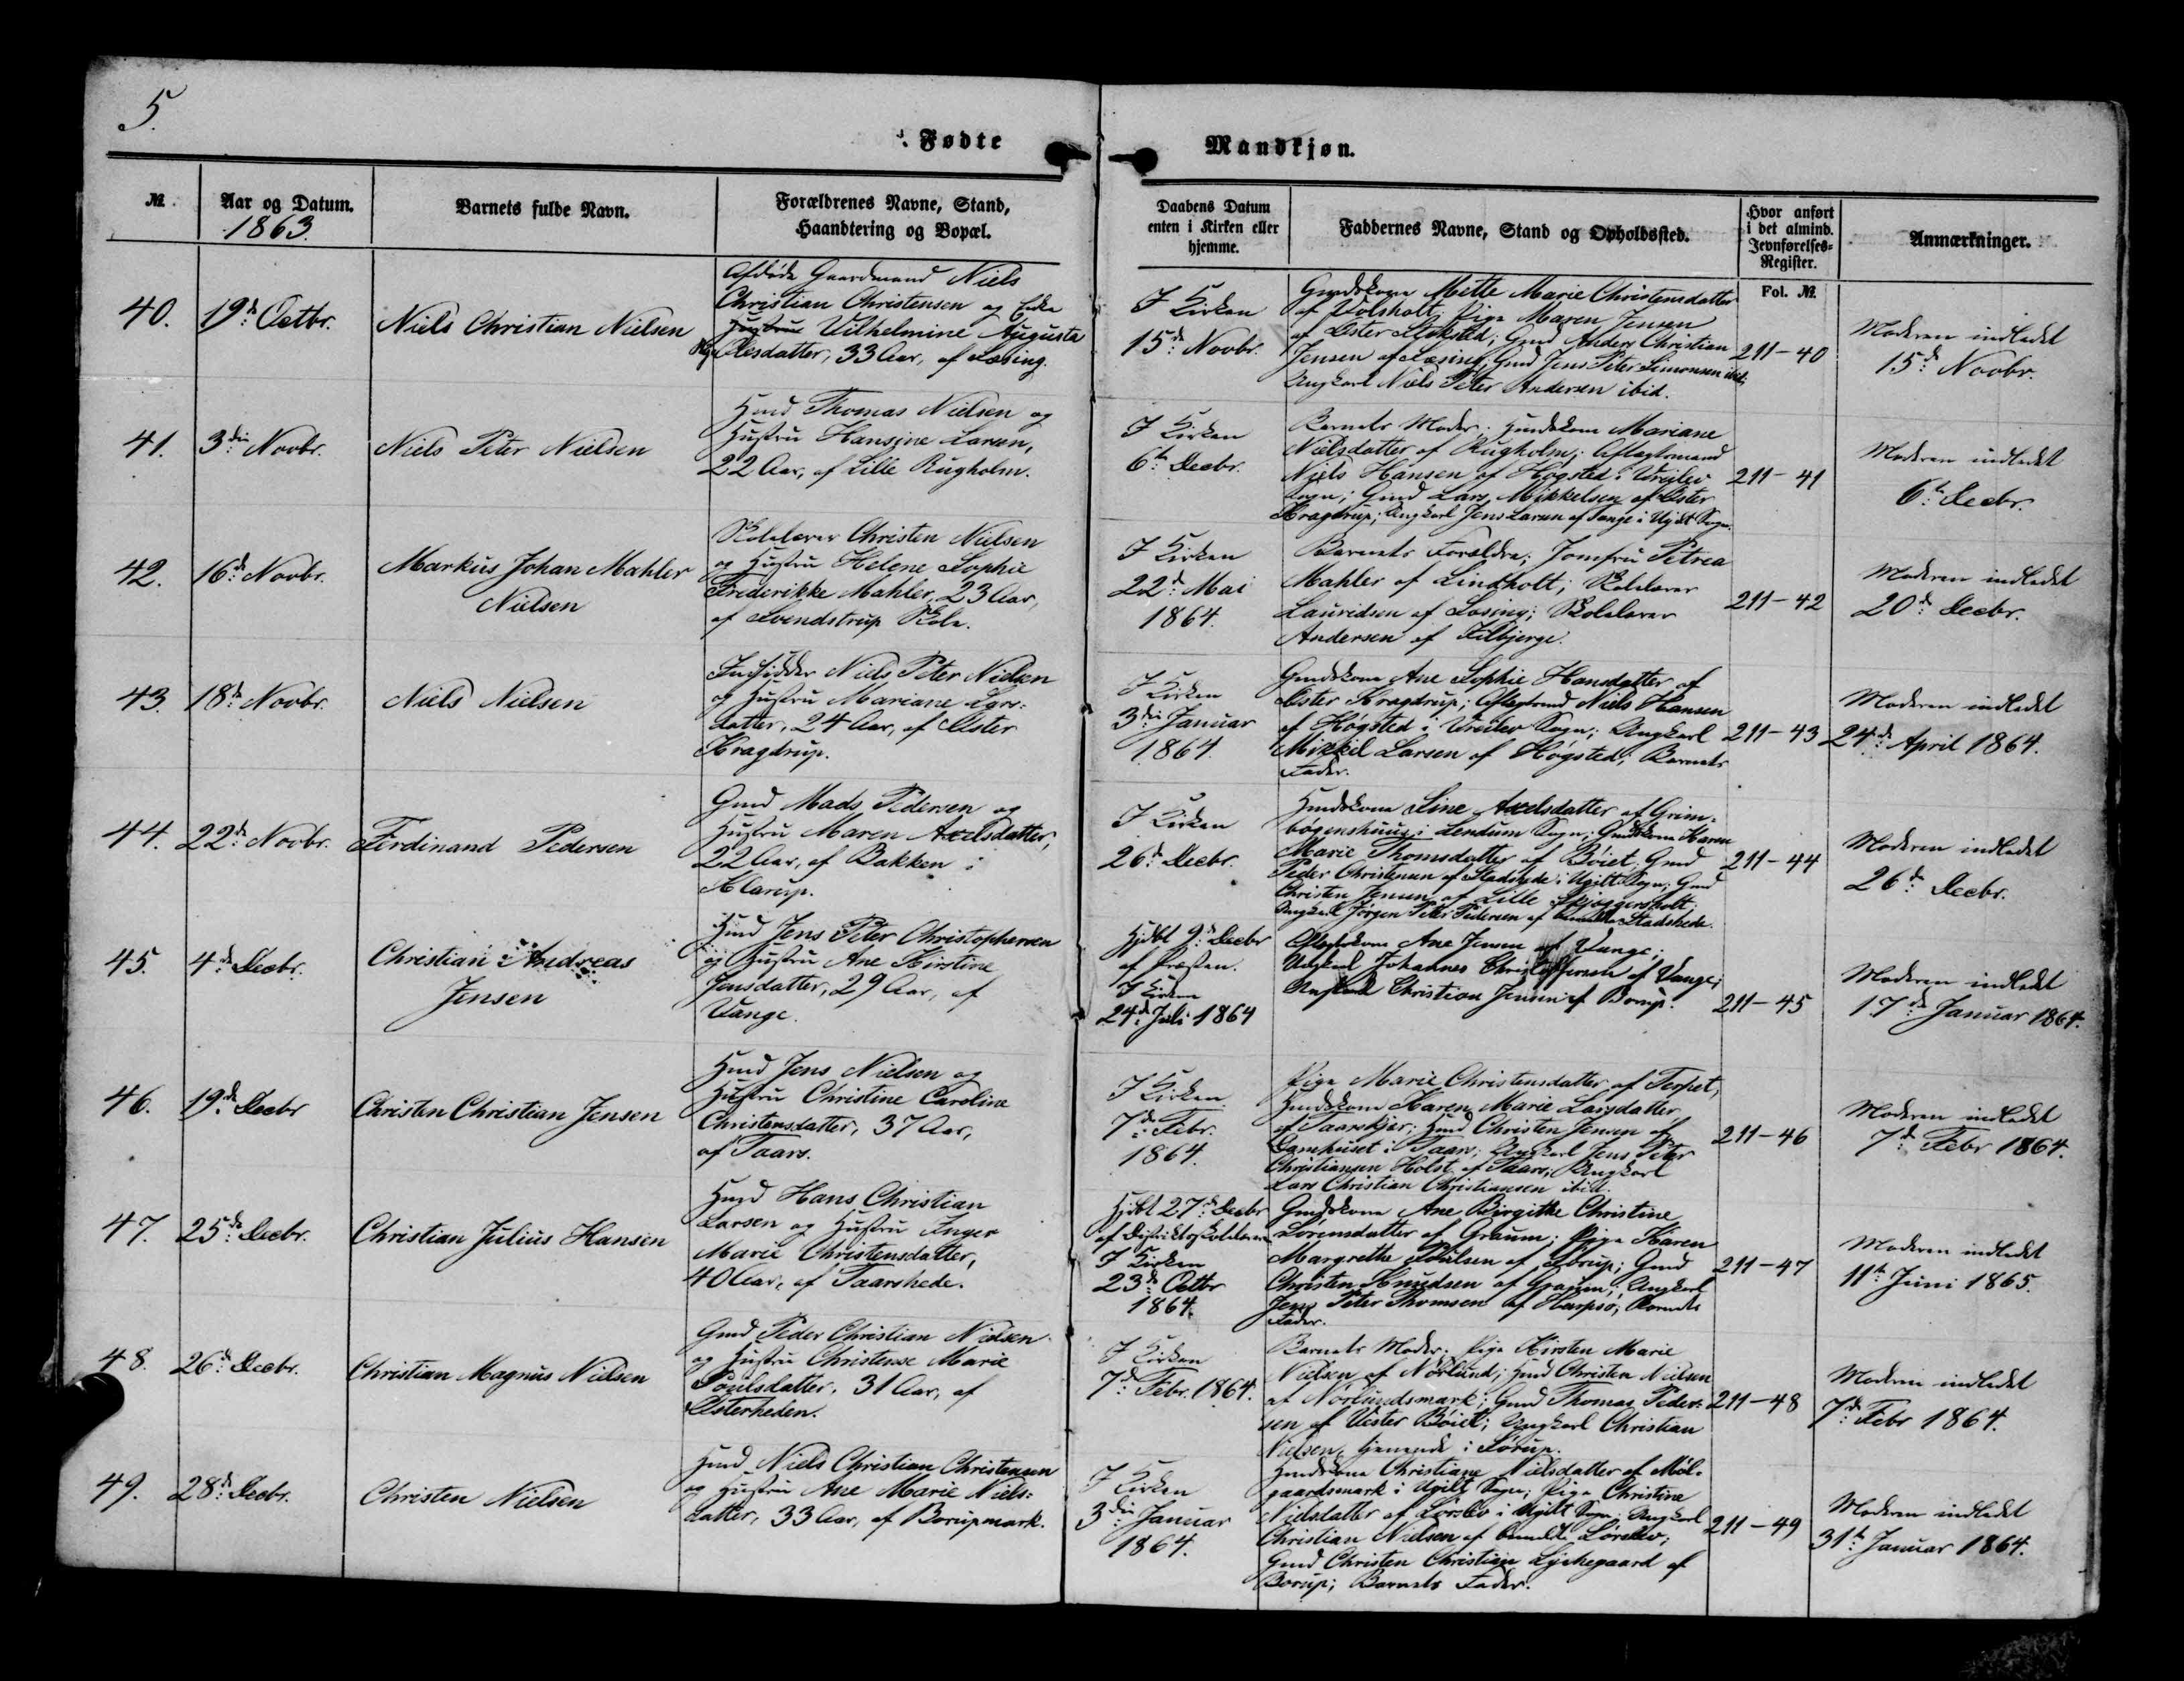 5.
Fødte
Mandkjøn.
№
Aar og Datum.
1863.
Barnets fulde Navn.
Forældrenes Navne, Stand,
Haandtering og Bopæl.
Daabens Datum
enten i Kirken eller
hjemme.
Faddernes Navne, Stand og Opholdssted.
Hvor anført
i det almind.
Jevnførelses-
Register.
Fol. №
Anmærkninger.
40.
19de Octbr.
Niels Christian Nielsen
Afdøde Gaardmand Niels
Christian Christensen og Enke
Hustru Vilhelmine Augusta
Olesdatter, 33 Aar, af Læsing.
I Kirken
15de Novbr.
Gmdskone Mette Marie Christensdatter
af Volsholt; Pige Maren Jensen
af Øster Linksted; Gmd Anders Christian
Jensen af Læsing; Gmd Jens Peter Simonsen ibid;
Ungkarl Niels Peter Andersen ibid.
211-40
Moderen indledet
15de Novbr.
41.
3die Novbr.
Niels Peter Nielsen
Hmd Thomas Nielsen og
Hustru Hansine Larsen,
22 Aar, af Lille Rugholm.
I Kirken
6te Decbr.
Barnets Moder; Hmdskone Mariane
Nielsdatter af Rugholm; Aftægtsmand
Niels Hansen af Høgsted i Vreilev
Sogn; Gmd Lars Mikkelsen af Øster
Kragdrup; Ungkarl Jens Larsen af Tange i Ugilt Sogn.
211-41
Moderen indledet
6te Decbr.
42.
16de Novbr.
Markus Johan Mahler
Nielsen
Skolelærer Christen Nielsen
og Hustru Helene Sophie
Frederikke Mahler, 23 Aar,
af Svendstrup Skole.
I Kirken
22de Mai
1864.
Barnets Forældre; Jomfru Petrea
Mahler af Lindholt; Skolelærer
Lauridsen af Læsing; Skolelærer
Andersen af Filbjerge.
211-42
Moderen indledet
20de Decbr.
43.
18de Novbr.
Niels Nielsen
Indsidder Niels Peter Nielsen
og Hustru Mariane Lars-
datter, 24 Aar, af Øster
Kragdrup.
I Kirken
3die Januar
1864.
Gmdskone Ane Sophie Hansdatter af
Øster Kragdrup; Aftægtsmd Niels Hansen
af Høgsted i Vreilev Sogn; Ungkarl
Mikkel Larsen af Høgsted; Barnets
Fader.
211-43
Moderen indledet
24de April 1864.
44.
22de Novbr.
Ferdinand Pedersen
Gmd Mads Pedersen og
Hustru Maren Axelsdatter,
22 Aar, af Bakken i
Klarup.
I Kirken
26de Decbr.
Hmdskone Line Axelsdatter af Grim-
bøgenshuus i Lendum Sogn; Gmdskone Karen
Marie Thomsdatter af Bøiet; Gmd
Peder Christensen af Stadshede i Ugilt Sogn; Gmd
Christen Jensen af Lille Skjøggersholt;
Ungkarl Jørgen Peter Pedersen af Stadshede.
211-44
Moderen indledet
26de Decbr.
45.
4de Decbr.
Christian Andreas
Jensen
Hmd Jens Peter Christophersen
og Hustru Ane Kirstine
Jensdatter, 29 Aar, af
Vange.
Hjdbt 9de Decbr
af Præsten.
I Kirken
24de Juli 1864
Aftægtskone Ane Jensen af Vange;
Ungkarl Johannes Christophersen af Vange;
Ungkarl Christian Jensen af Borup.
211-45
Moderen indledet
17de Januar 1864.
46.
19de Decbr
Christen Christian Jensen
Hmd Jens Nielsen og
Hustru Christine Caroline
Christensdatter, 37 Aar,
af Taars.
I Kirken
7de Febr.
1864.
Pige Marie Christensdatter af Terpet;
Hmdskone Karen Marie Larsdatter
af Taarskjær; Hmd Christen Jensen af
Damhuset i Taars; Ungkarl Jens Peter
Christiansen Holst af Taars; Ungkarl
Lars Christian Christiansen ibid.
211-46
Moderen indledet
7de Febr 1864.
47.
25de Decbr.
Christian Julius Hansen
Hmd Hans Christian
Larsen og Hustru Inger
Marie Christensdatter,
40 Aar, af Taarshede.
Hjdbt 27de Decbr
af Distriktsskolelæreren
I Kirken
23de Octbr
1864.
Gmdskone Ane Birgitke Christine
Sørensdatter af Graum; Pige Karen
Margrethe Poulsen af Sørup; Gmd
Christen Knudsen af Graum; Ungkarl
Jens Peter Thomsen af Harpsø; Barnets
Fader.
211-47
Moderen indledet
11te Juni 1865.
48.
26de Decbr.
Christian Magnus Nielsen
Gmd Peder Christian Nielsen
og Hustru Christense Marie
Poulsdatter, 31 Aar, af
Østerheden.
I Kirken
7de Febr. 1864.
Barnets Moder; Pige Kirsten Marie
Nielsen af Nørlund; Hmd Christen Nielsen
af Nørlundsmark; Gmd Thomas Peder-
sen af Vester Bøiet; Ungkarl Christian
Nielsen, tjenende i Sørup.
211-48
Moderen indledet
7de Febr 1864.
49.
28de Decbr.
Christen Nielsen
Hmd Niels Christian Christensen
og Hustru Ane Marie Niels-
datter, 33 Aar, af Borupmark.
I Kirken
3die Januar
1864.
Hmdskone Christiane Nielsdatter af Møl-
gaardsmark i Ugilt Sogn; Pige Christine
Nielsdatter af Lørslev i Ugilt Sogn; Ungkarl
Christian Nielsen af Lørslev;
Gmd Christen Christian Lykkegaard af
Borup; Barnets Fader.
211-49
Moderen indledet
31te Januar 1864.